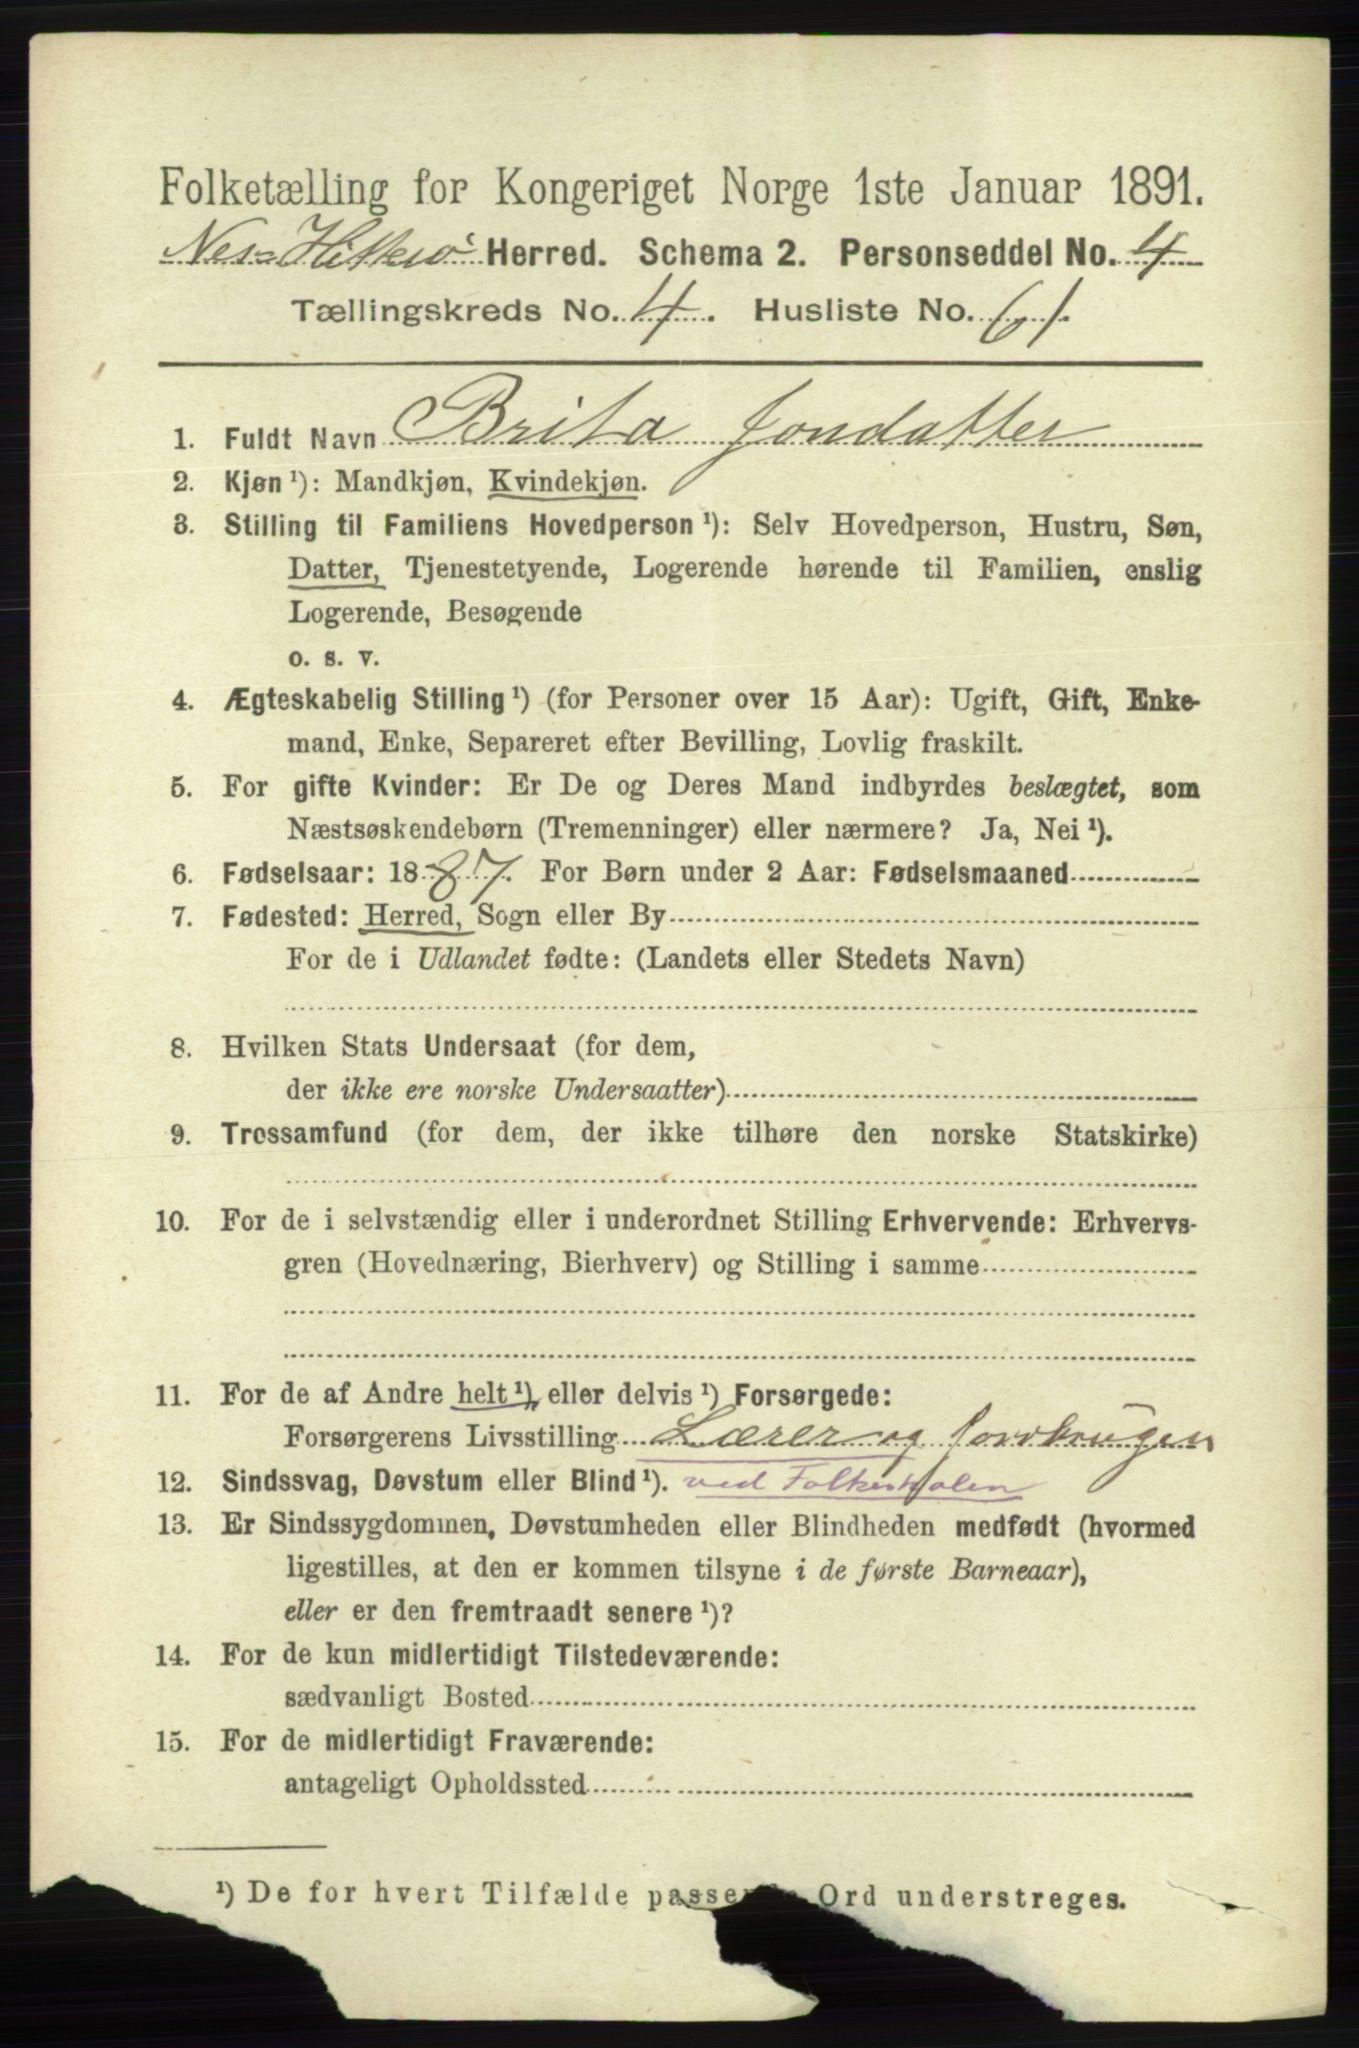 Folketælling for Kongeriget Norge 1ste Januar 1891.
Nes-Hitterø Herred. Schema 2. Personseddel No. 4
Tællingskreds No. 4. Husliste No. 61.
1. Fuldt Navn Brita Jondatter
2. Kjøn ¹): Mandkjøn, Kvindekjøn.
3. Stilling til Familiens Hovedperson ¹): Selv Hovedperson, Hustru, Søn,
Datter, Tjenestetyende, Logerende hørende til Familien, enslig
Logerende, Besøgende
o. s. v.
4. Ægteskabelig Stilling ¹) (for Personer over 15 Aar): Ugift, Gift, Enke-
mand, Enke, Separeret efter Bevilling, Lovlig fraskilt.
5. For gifte Kvinder: Er De og Deres Mand indbyrdes beslægtet, som
Næstsøskendebørn (Tremenninger) eller nærmere? Ja, Nei ¹).
6. Fødselsaar: 1887. For Børn under 2 Aar: Fødselsmaaned
7. Fødested: Herred, Sogn eller By
For de i Udlandet fødte: (Landets eller Stedets Navn)
8. Hvilken Stats Undersaat (for dem,
der ikke ere norske Undersaatter)
9. Trossamfund (for dem, der ikke tilhøre den norske Statskirke)
10. For de i selvstændig eller i underordnet Stilling Erhvervende: Erhvervs-
gren (Hovednæring, Bierhverv) og Stilling i samme
11. For de af Andre helt ¹), eller delvis ¹) Forsørgede:
Forsørgerens Livsstilling Lærer og Jordbruger
12. Sindssvag, Døvstum eller Blind ¹). ved Folkeskolen
13. Er Sindssygdommen, Døvstumheden eller Blindheden medfødt (hvormed
ligestilles, at den er kommen tilsyne i de første Barneaar),
eller er den fremtraadt senere ¹)?
14. For de kun midlertidigt Tilstedeværende:
sædvanligt Bosted
15. For de midlertidigt Fraværende:
antageligt Opholdssted
¹) De for hvert Tilfælde passende Ord understreges.